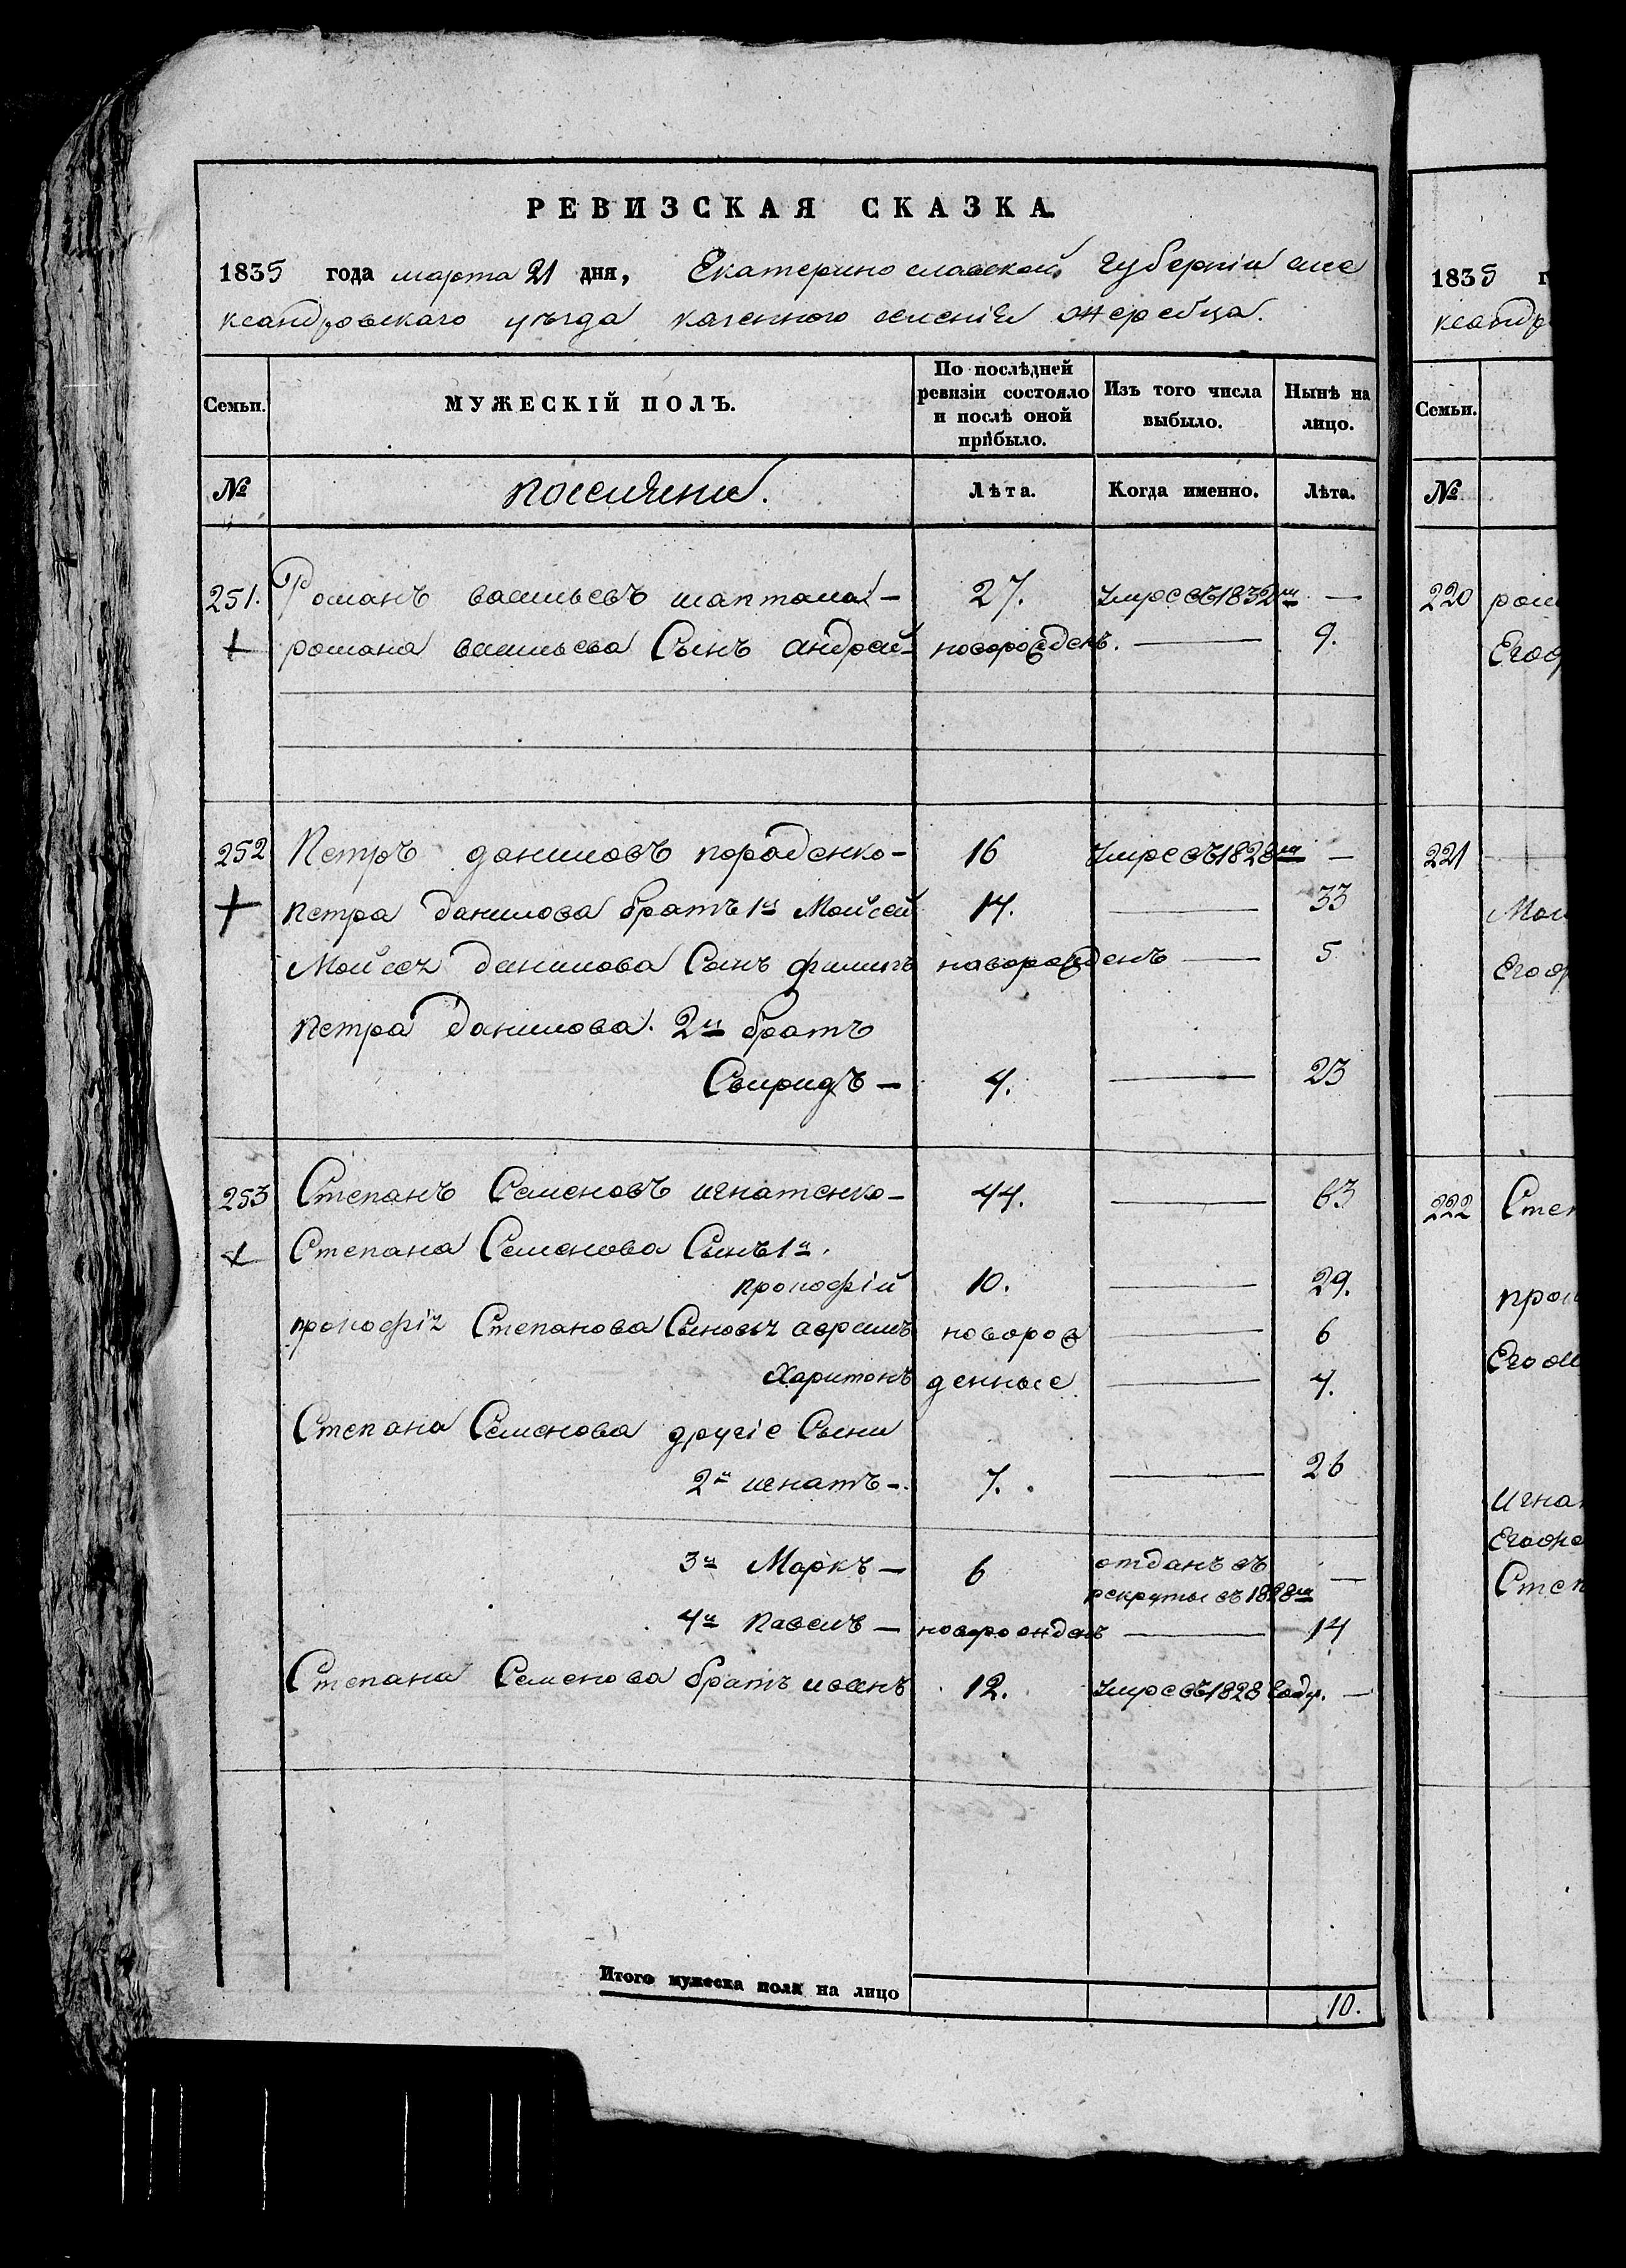 РЕВИЗСКАЯ СКАЗКА.
1835 года марта 21 дня, Екатеринославской губернiи алѣ
ксандровскаго уѣзда казенного селенiя жеребца.
Семьи.
МУЖЕСКІЙ ПОЛЪ.
По послѣдней ревизіи состояло и послѣ оной прибыло.
Изъ того числа выбыло.
Нынѣ на лицо.
№
поселяне.
Лѣта.
Когда именно.
Лѣта.
251. Романъ васильевъ шаптала — 27. умре въ 1832м —
+ романа васильева Сынъ андрей новорожденъ. — 9.
252 Петръ даниловъ породенко — 16 умре въ 1828м —
+ петра данилова братъ 1й Мойсей 14. — 33
Мойсея данилова Сынъ филипъ новорожденъ — 5
петра данилова. 2й братъ
Свиридъ — 4. — 23
253 Степанъ Семеновъ игнатенко — 44. — 63
+ Степана Семенова Сынъ 1й.
прокофiй 10. — 29.
прокофiя Степанова Сыновья аврамъ новорож — 6
Харитонъ денные — 4.
Степана Семенова другiе Сыни
2й игнатъ — 7. — 26
3й Маркъ — 6 отданъ въ рекруты въ 1828м —
4й павелъ — новорожденъ — 14
Степана Семенова братъ иванъ 12. умре въ 1828 году. —
Итого мужеска пола на лицо 10.
1835 г
ксандр
Семьи.
№
220 рома
Его
221
Мои
Его
222 Степ
прок
Его
игнат
Его
Степ